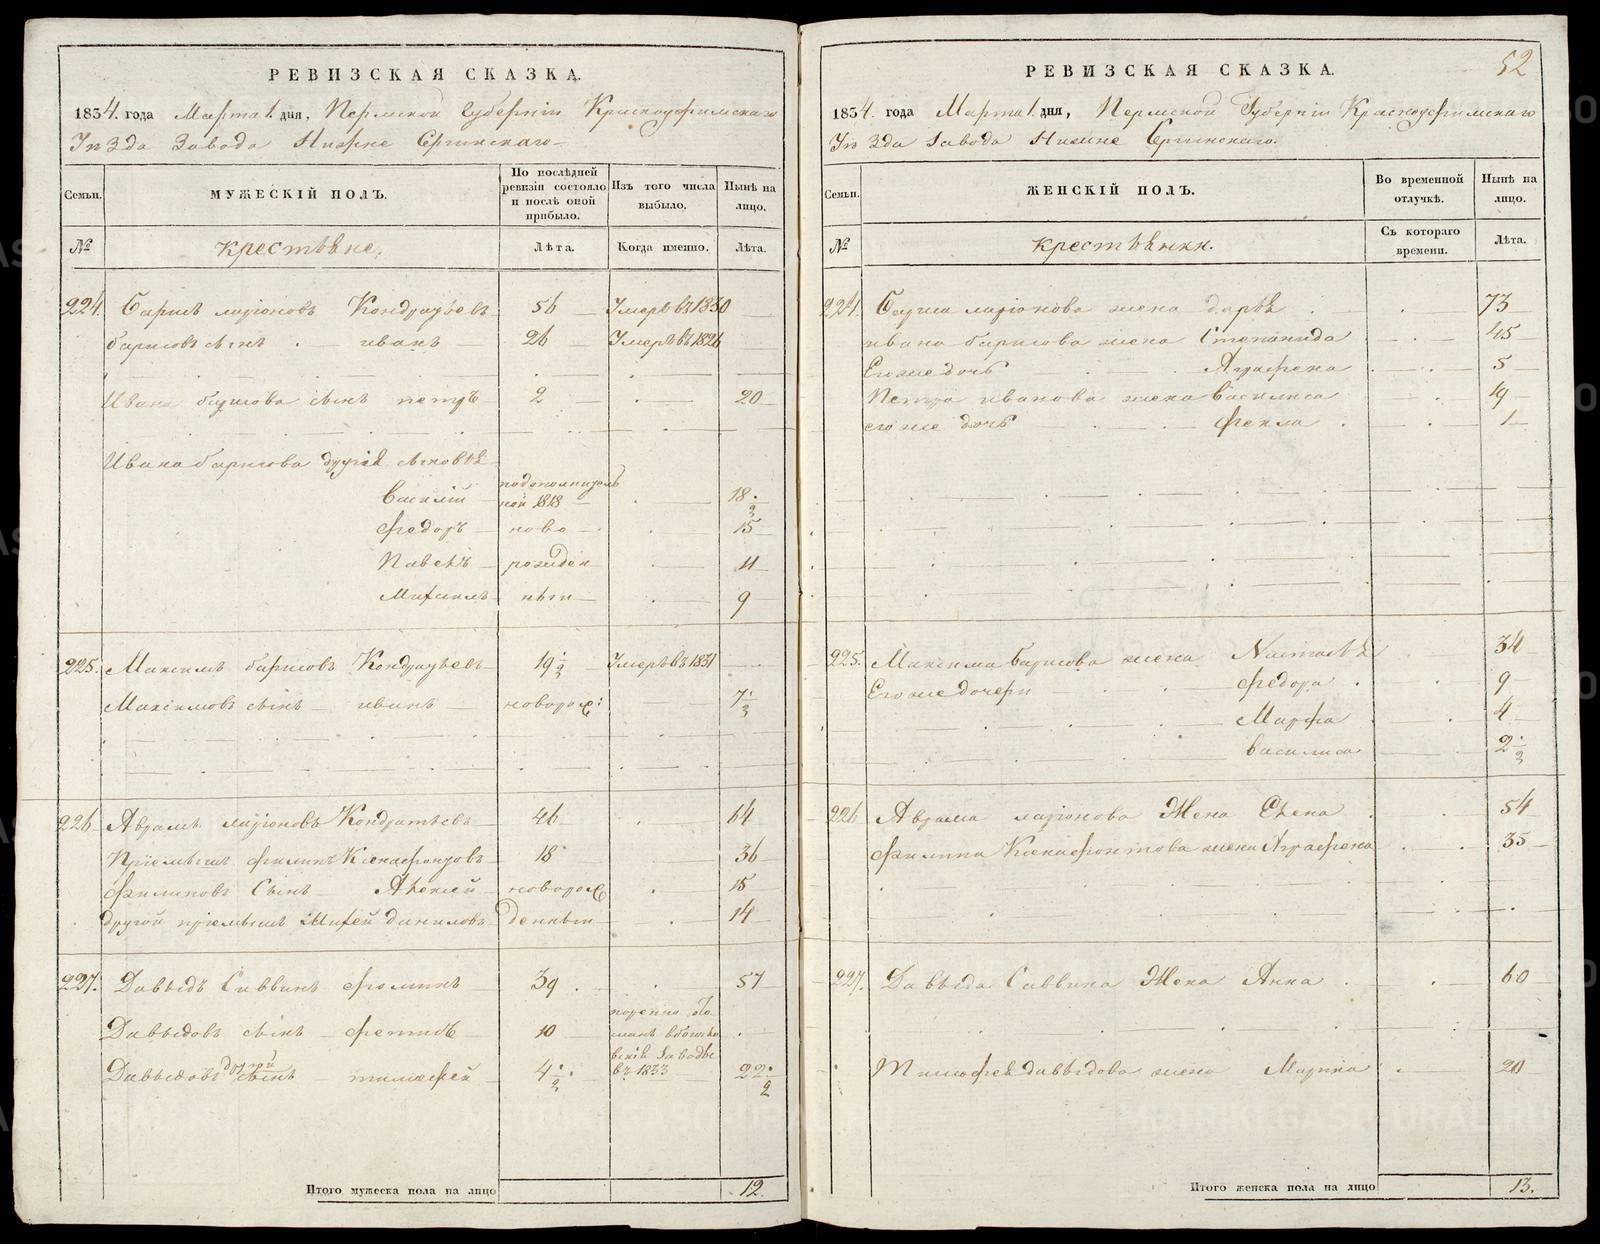 РЕВИЗСКАЯ СКАЗКА.
1834. года Марта 1. дня, Пермской Губернiи Красноуфимскаго
Уѣзда Завода Нижне Сергинскаго
Семьи.
МУЖЕСКIЙ ПОЛЪ.
По послѣдней ревизiи состояло и послѣ оной прибыло.
Изъ того числа выбыло.
Нынѣ на лицо.
№
Крестьяне.
Лѣта.
Когда именно.
Лѣта.
224. Борисъ Ларiоновъ Кондратьевъ 56 Умеръ въ 1830
Борисовъ сынъ Иванъ 26 Умеръ въ 1826
Ивана Борисова сынъ Петръ 2 20
Ивана Борисова другiя сыновья
Василiй по дополнитель ной 1818 18 1/2
Федоръ ново 15
Павелъ рожден 11
Михаилъ ныи 9
225. Максимъ Борисовъ Кондратьевъ 19 1/2 Умеръ въ 1831
Максимовъ сынъ Иванъ новорож: 7 1/2
226 Аврамъ Ларiоновъ Кондратьевъ 46 64
Прiемышъ Филипъ Ксенофонтовъ 18 36
Филиповъ Сынъ Алексей новорож 15
другой прiемышъ Михей Даниловъ денныи 14
227. Давыдъ Саввинъ Фоминъ 39 57
Давыдовъ сынъ 10
въ 1833
Давыдовъ другой сынъ Тимофей 4 1/2 22 1/2
Итого мужеска пола на лицо 12.
52
РЕВИЗСКАЯ СКАЗКА.
1834. года Марта 1. дня, Пермской Губернiи Красноуфимскаго
Уѣзда Завода Нижне Сергинскаго.
Семьи.
ЖЕНСКIЙ ПОЛЪ.
Во временной отлучкѣ.
Нынѣ на лицо.
№
Крестьянки.
Съ котораго времени.
Лѣта.
224. Бориса Ларiонова жена Дарья 73
Ивана Борисова жена Степанида 45
Его же дочь Аграфена 5
Петра Иванова жена Василиса 19
его же дочь Фекла 1
225. Максима Борисова жена Настасья 34
Его же дочери Федора 9
Марфа 4
Василиса 2 1/2
226 Аврама Ларiонова Жена Елена 54
Филипа Ксенофонтова жена Аграфена 35
227. Давыда Саввина Жена Анна 60
Тимофея Давыдова жена Марина 20
Итого женска пола на лицо 13.
METRIKI.GASO-URAL.RU